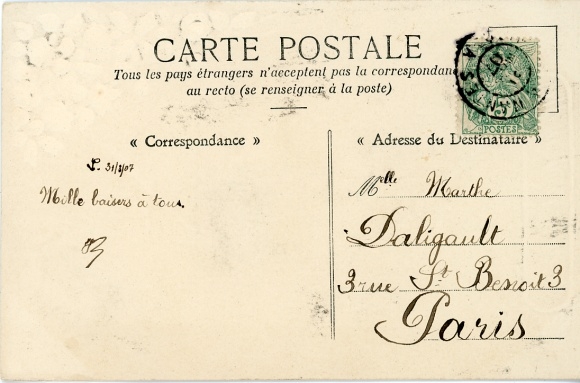 CARTE POSTALE
Tous les pays étrangers n'acceptent pas la correspondanc
au recto (se renseigner à la poste)
« Correspondance »
31/1/07
Mille baisers à tous.
« Adresse du Destinataire »
Melle Marthe
Daligault
3 rue St Benoit 3
Paris
POSTES